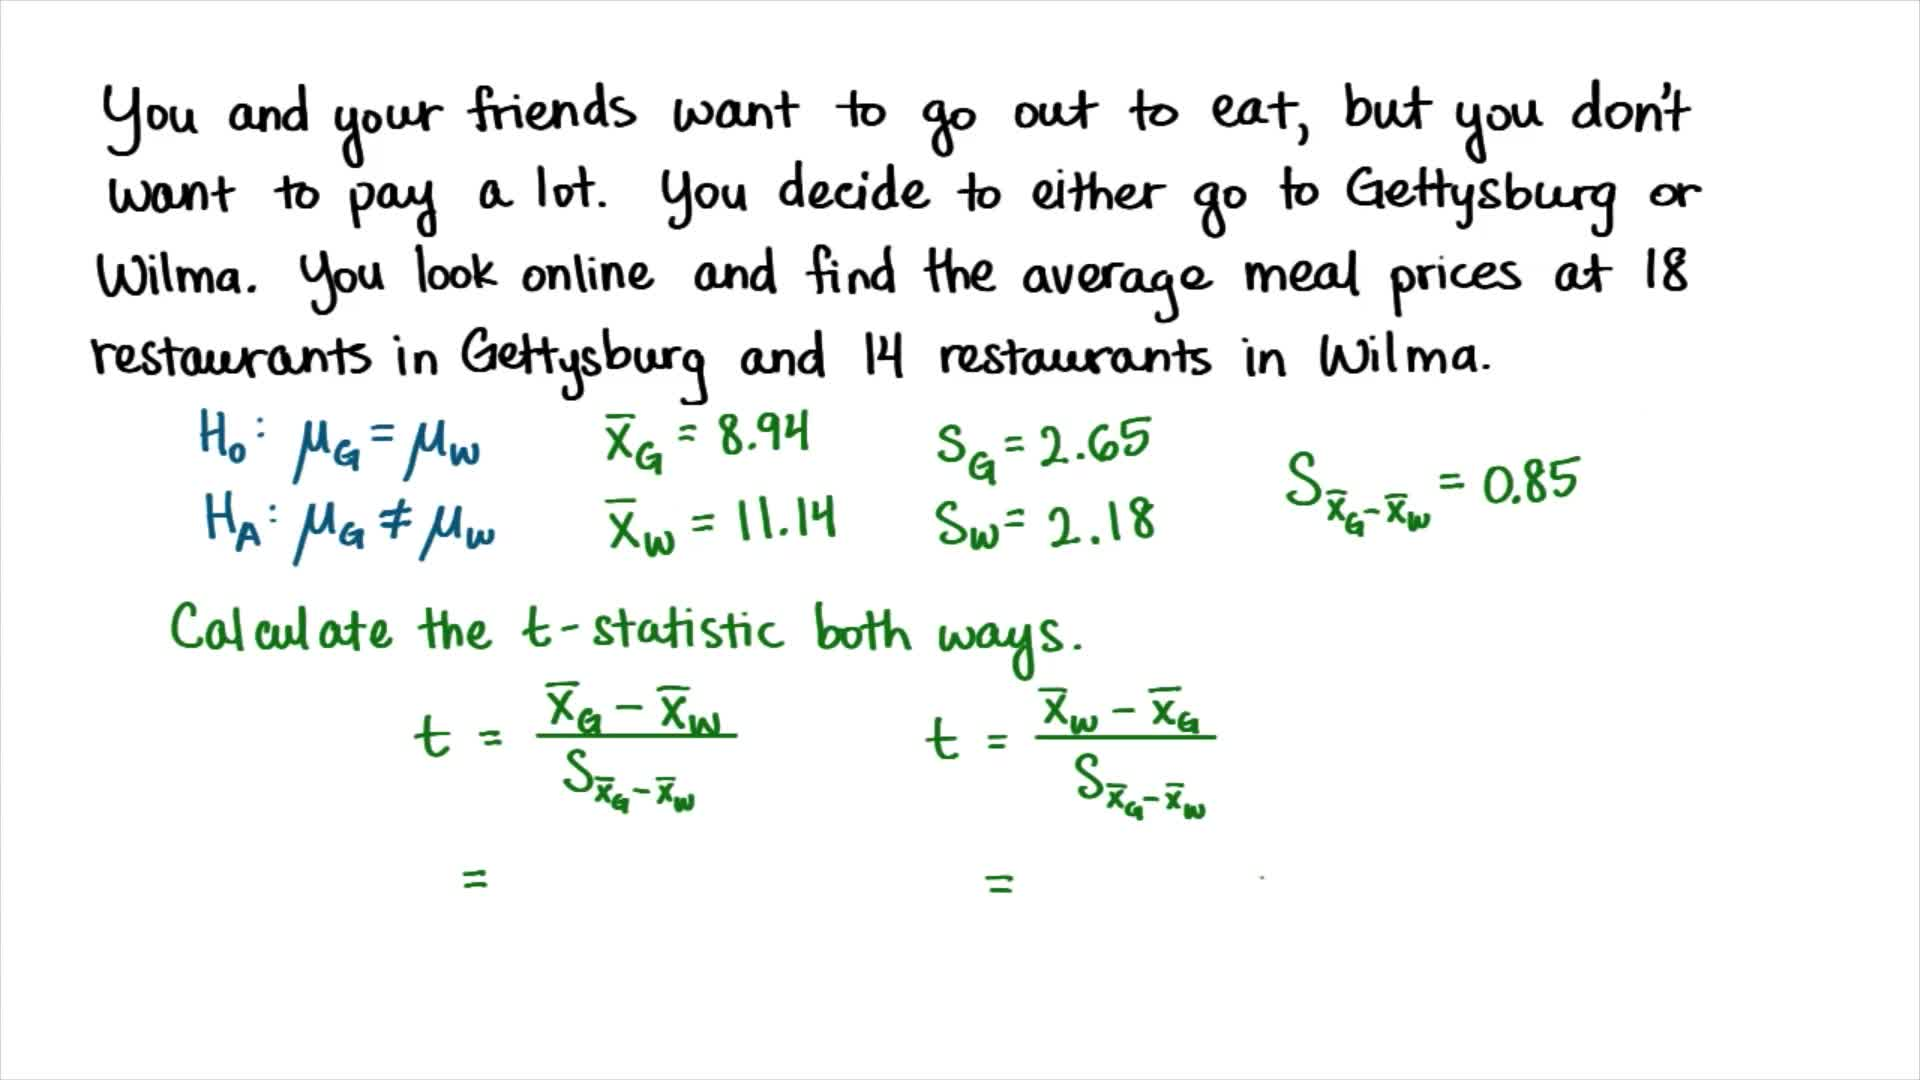 You and your friends want to go out to eat, but you don't
want to pay a lot. You decide to either go to Gettysburg or
Wilma. You look online and find the average meal prices at 18
restaurants in Gettysburg and 14 restaurants in Wilma.
H₀: μ_G = μ_W    x̄_G = 8.94    S_G = 2.65    S_{x̄_G - x̄_W} = 0.85
H_A: μ_G ≠ μ_W    x̄_W = 11.14    S_W = 2.18
Calculate the t-statistic both ways.
t = (x̄_G - x̄_W) / S_{x̄_G - x̄_W}    t = (x̄_W - x̄_G) / S_{x̄_G - x̄_W}
=    =